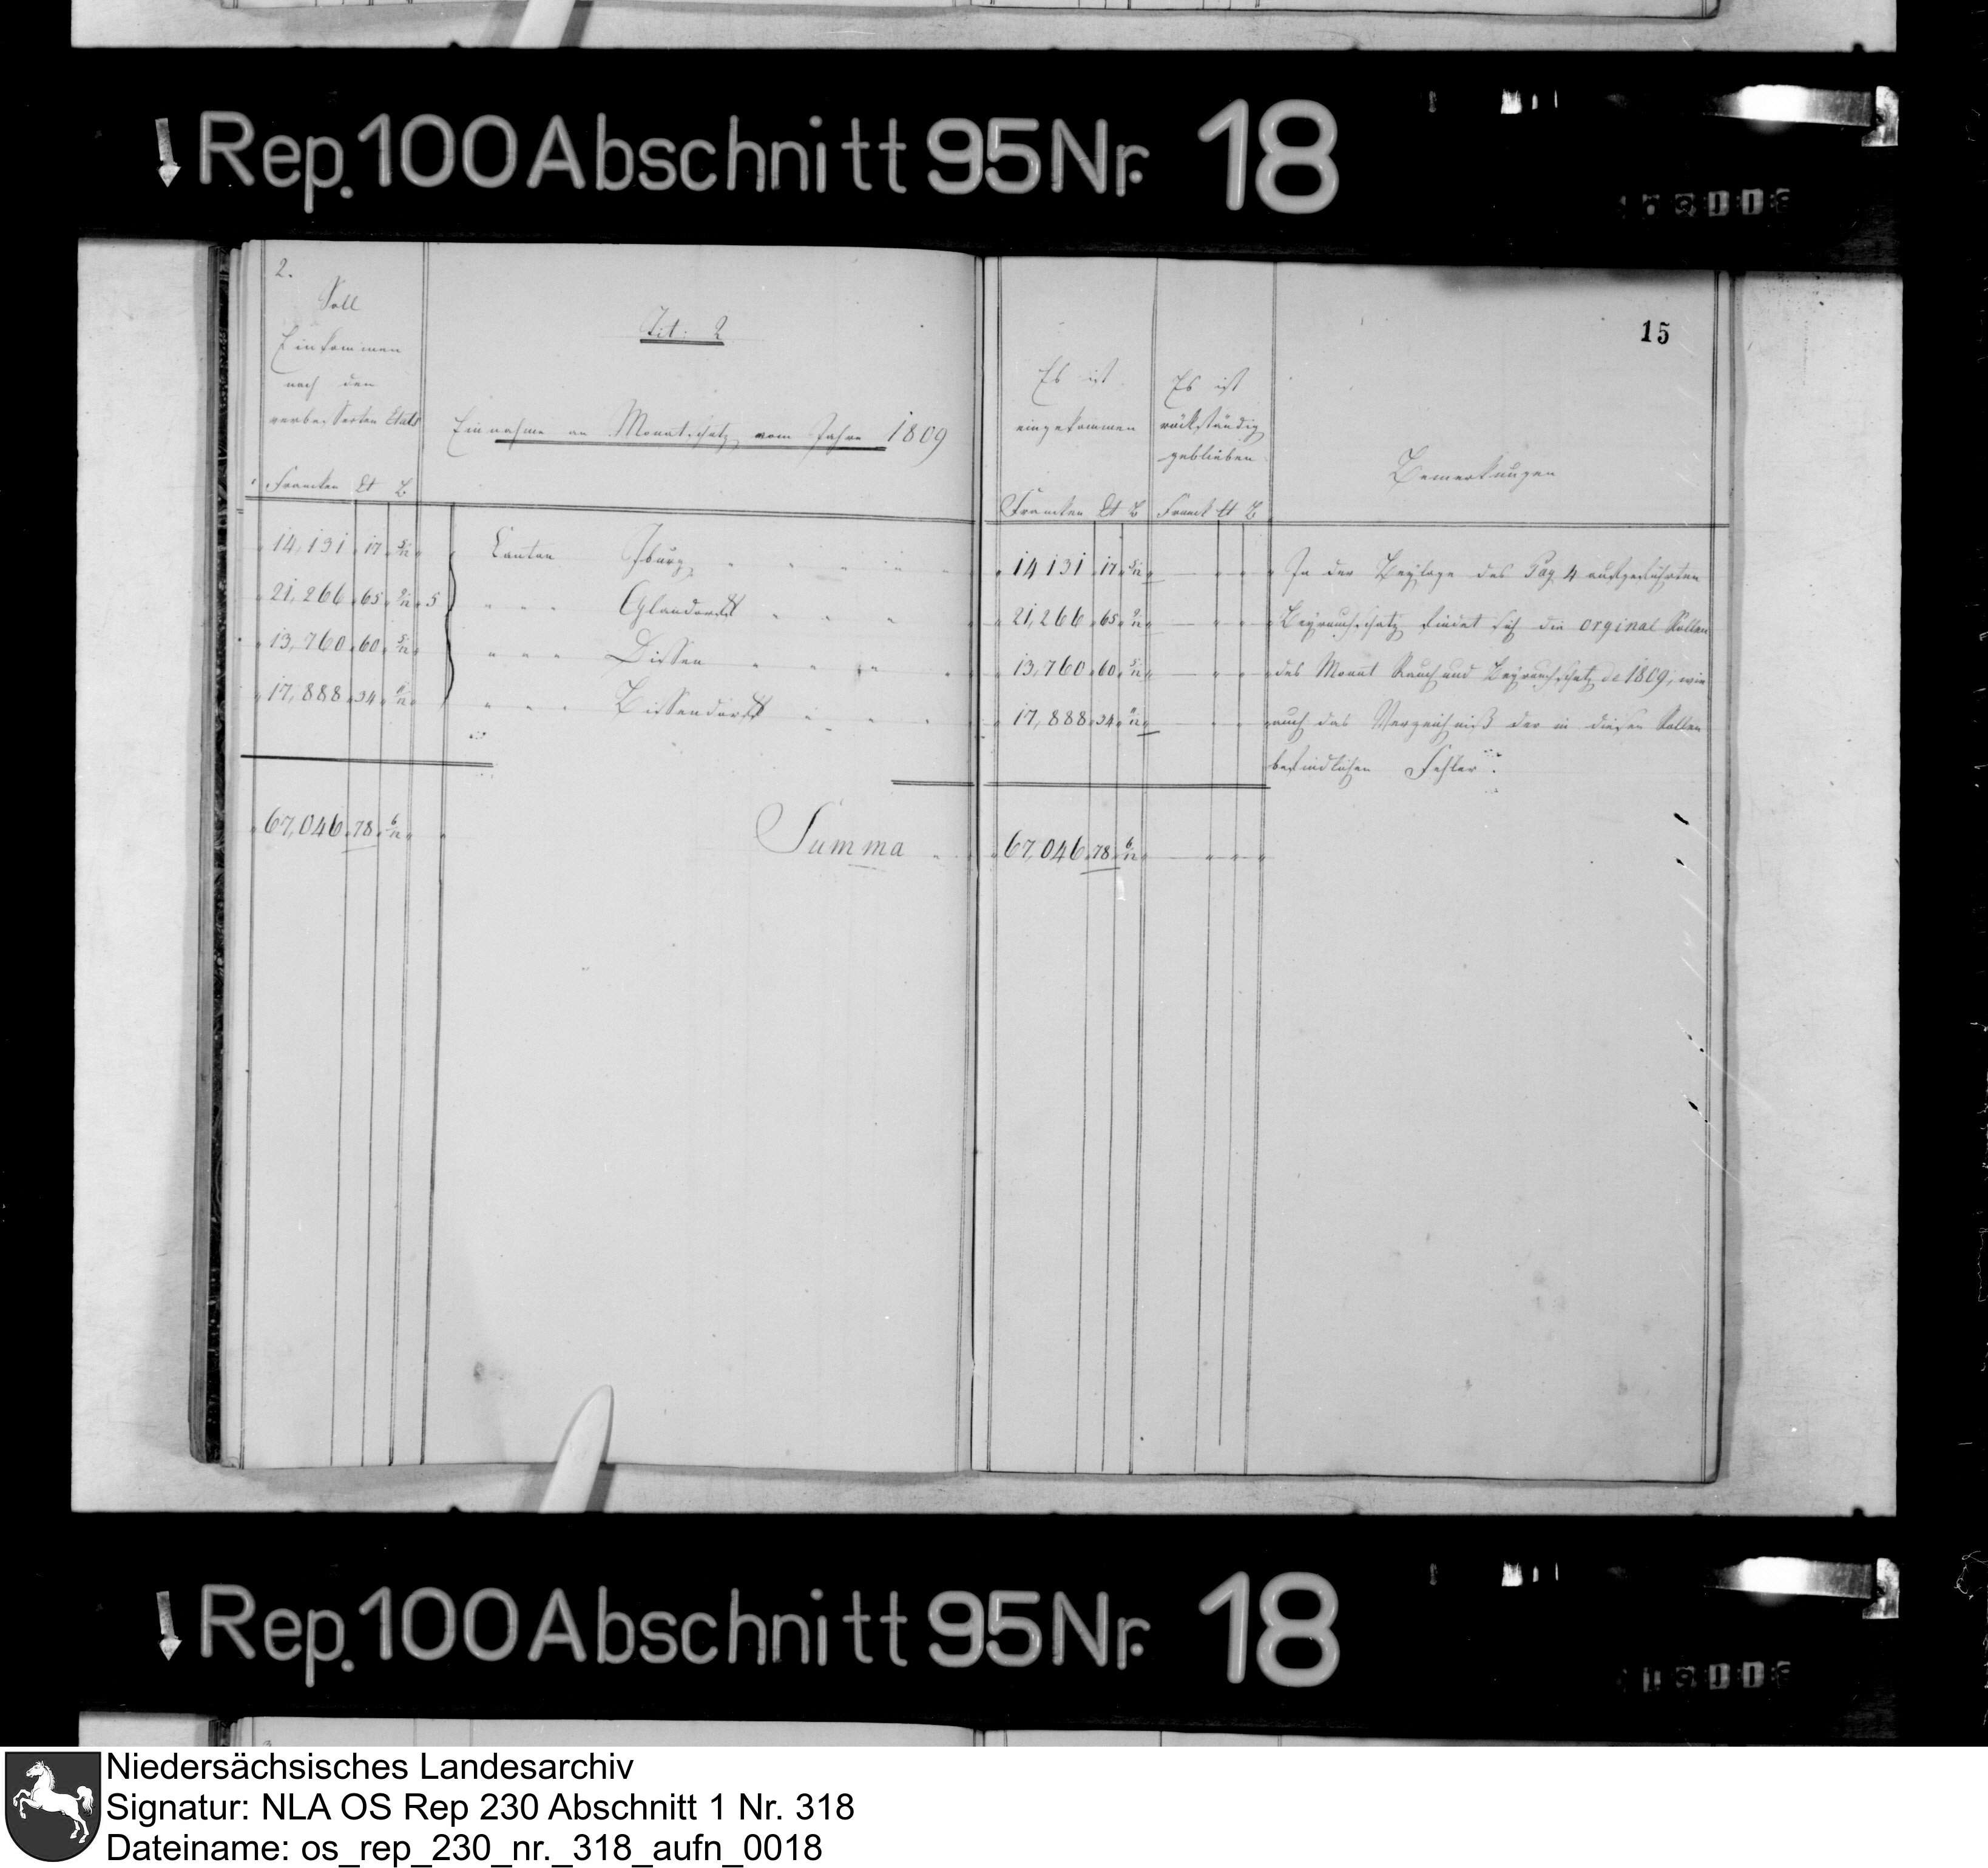 Rep. 100 Abschnitt 95 Nr. 18
2.
Soll
Einkommen
nach den
verbesserten Etats
Francken Ct
Tit: 2
Einnahme an Monatschatz vom Jahre 1809
14,131 17 5/12 Canton Iburg
21,266 65 9/12 5 " " " Glandorff
13,760 60 5/12 " " " Dissen
17,888 34 11/12 " " " Bissendorff
67,046 78 6/12 Summa
15
Es ist
eingekommen
Francken Ct
Es ist
rückständig
geblieben
Franck Ct
Bemerkungen
14131 17 5/12
21,266 65 9/12
13,760 60 5/12
17,888 34 11/12
67,046 78 6/12
In der Beylage des Pag 4 aufgeführten
Beyrauchschatz findet sich die orginal Rollen
des Monat Rauch und Beyrauchschatz de 1809, wie
auch das Verzeichniß der in diesen Rollen
befindlichen Fehler.
Rep. 100 Abschnitt 95 Nr. 18
Niedersächsisches Landesarchiv
Signatur: NLA OS Rep 230 Abschnitt 1 Nr. 318
Dateiname: os_rep_230_nr._318_aufn_0018